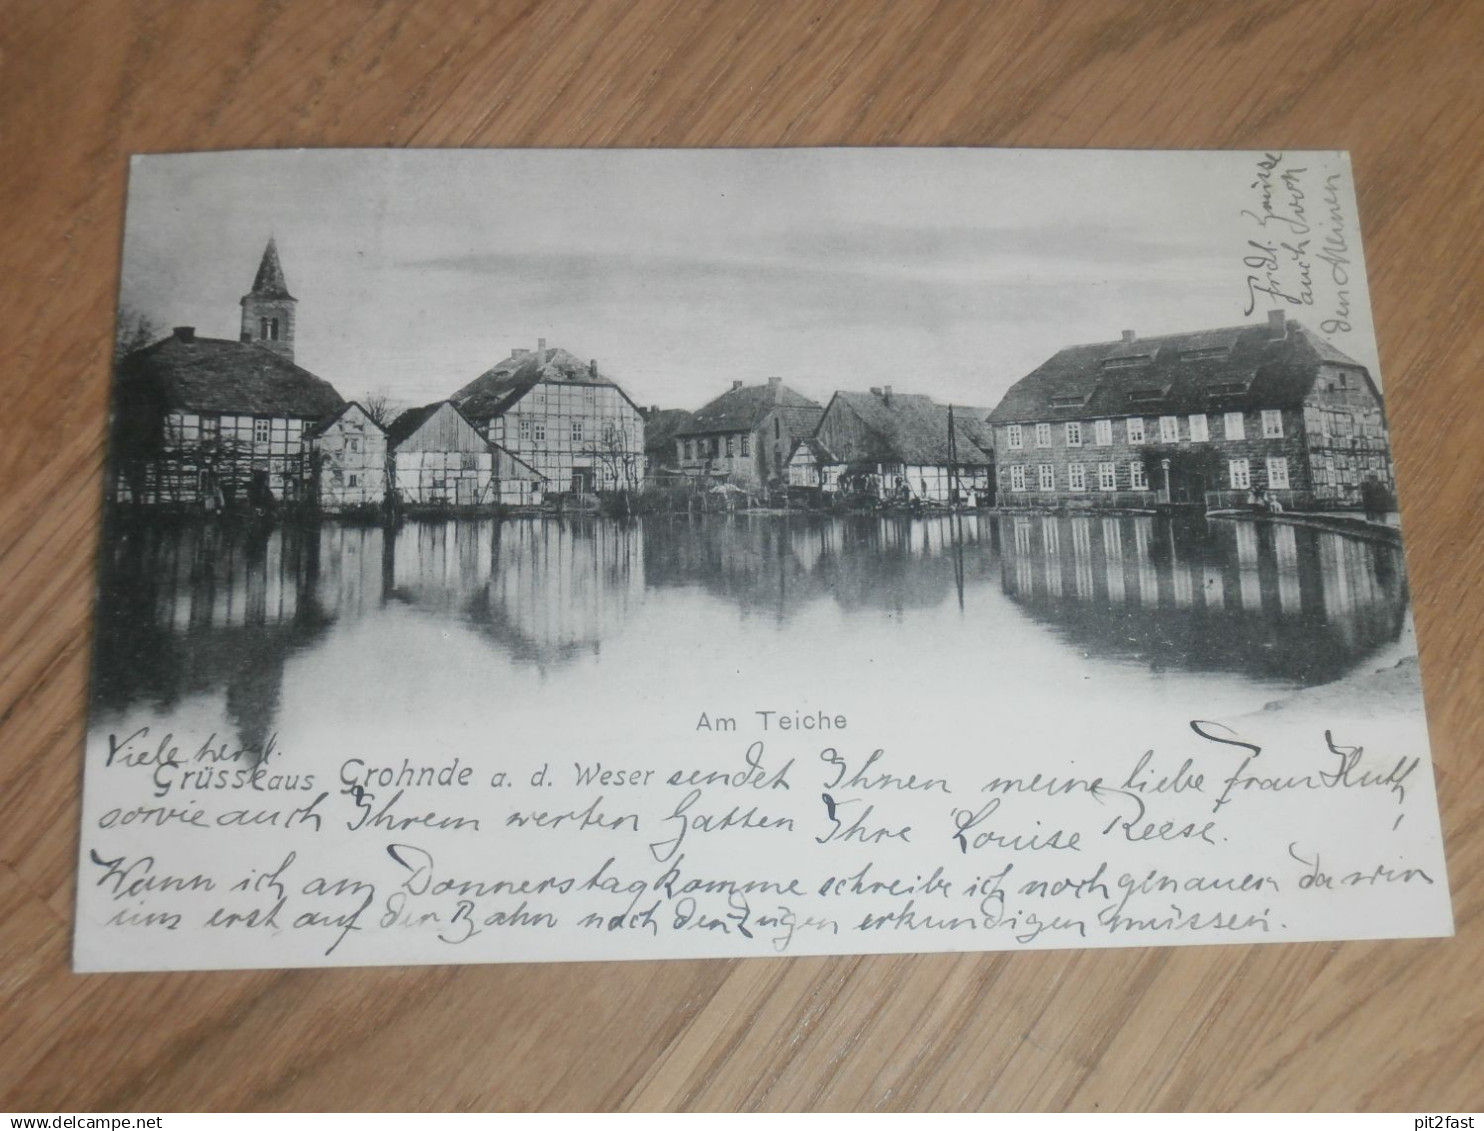 Frdl. Grüsse
auch von
den Meinen.
Am Teiche
Viele herzl.
Grüsse aus Grohnde a. d. Weser sendet Ihnen meine liebe Frau Huth
sowie auch Ihrem werten Gatten Ihre Louise Reese. !
Wann ich am Donnerstag komme schreibe ich noch genauer, da wir
uns erst auf der Bahn nach den Zügen erkundigen müssen.
www.delcampe.net
pit2fast